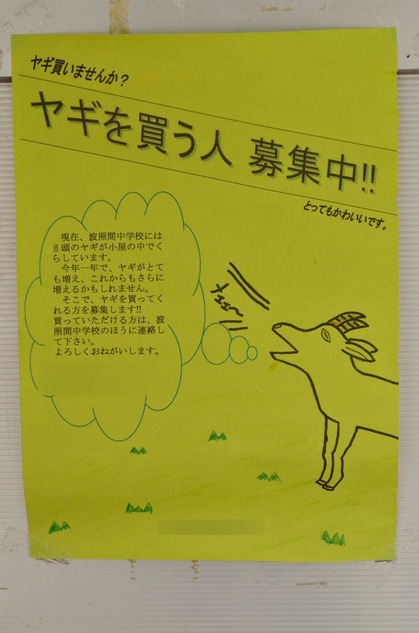 ヤギ買いませんか？
ヤギを買う人 募集中!!
とってもかわいいです。
現在、波照間中学校には
８頭のヤギが小屋の中でく
らしています。
今年一年で、ヤギがとて
も増え、これからもさらに
増えるかもしれません。
そこで、ヤギを買ってく
れる方を募集します!!
買っていただける方は、波
照間中学校のほうに連絡し
て下さい。
よろしくおねがいします。
メェェ～